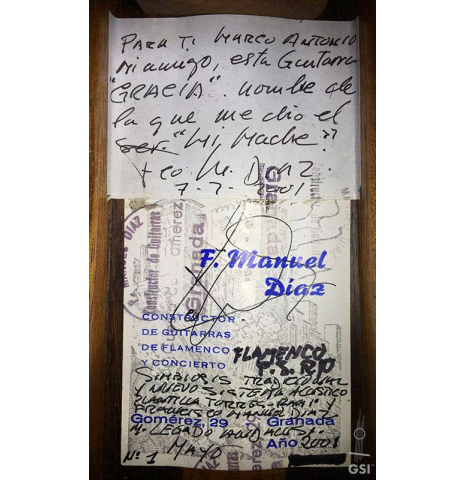 PARA TI MARCO ANTONIO
mi amigo, esta Guitarra
"GRACIA". nombre de
la que me dio el
ser. "Mi Madre"
Fco M. DIAZ.
7-7-2001
F. Manuel
Díaz
CONSTRUCTOR
DE GUITARRAS
DE FLAMENCO
Y CONCIERTO
FLAMENCO
SIMBIOSIS TRADICIONAL
Y NUEVO SISTEMA ACUSTICO
PLANTILLA TORRES
FRANCISCO MANUEL DIAZ
Gomérez, 29 Granada
LEGADO
Año 2001
Nº 1 MAYO
MANUEL DIAZ
Constructor de Guitarras
Gomerez
Granada
GSI